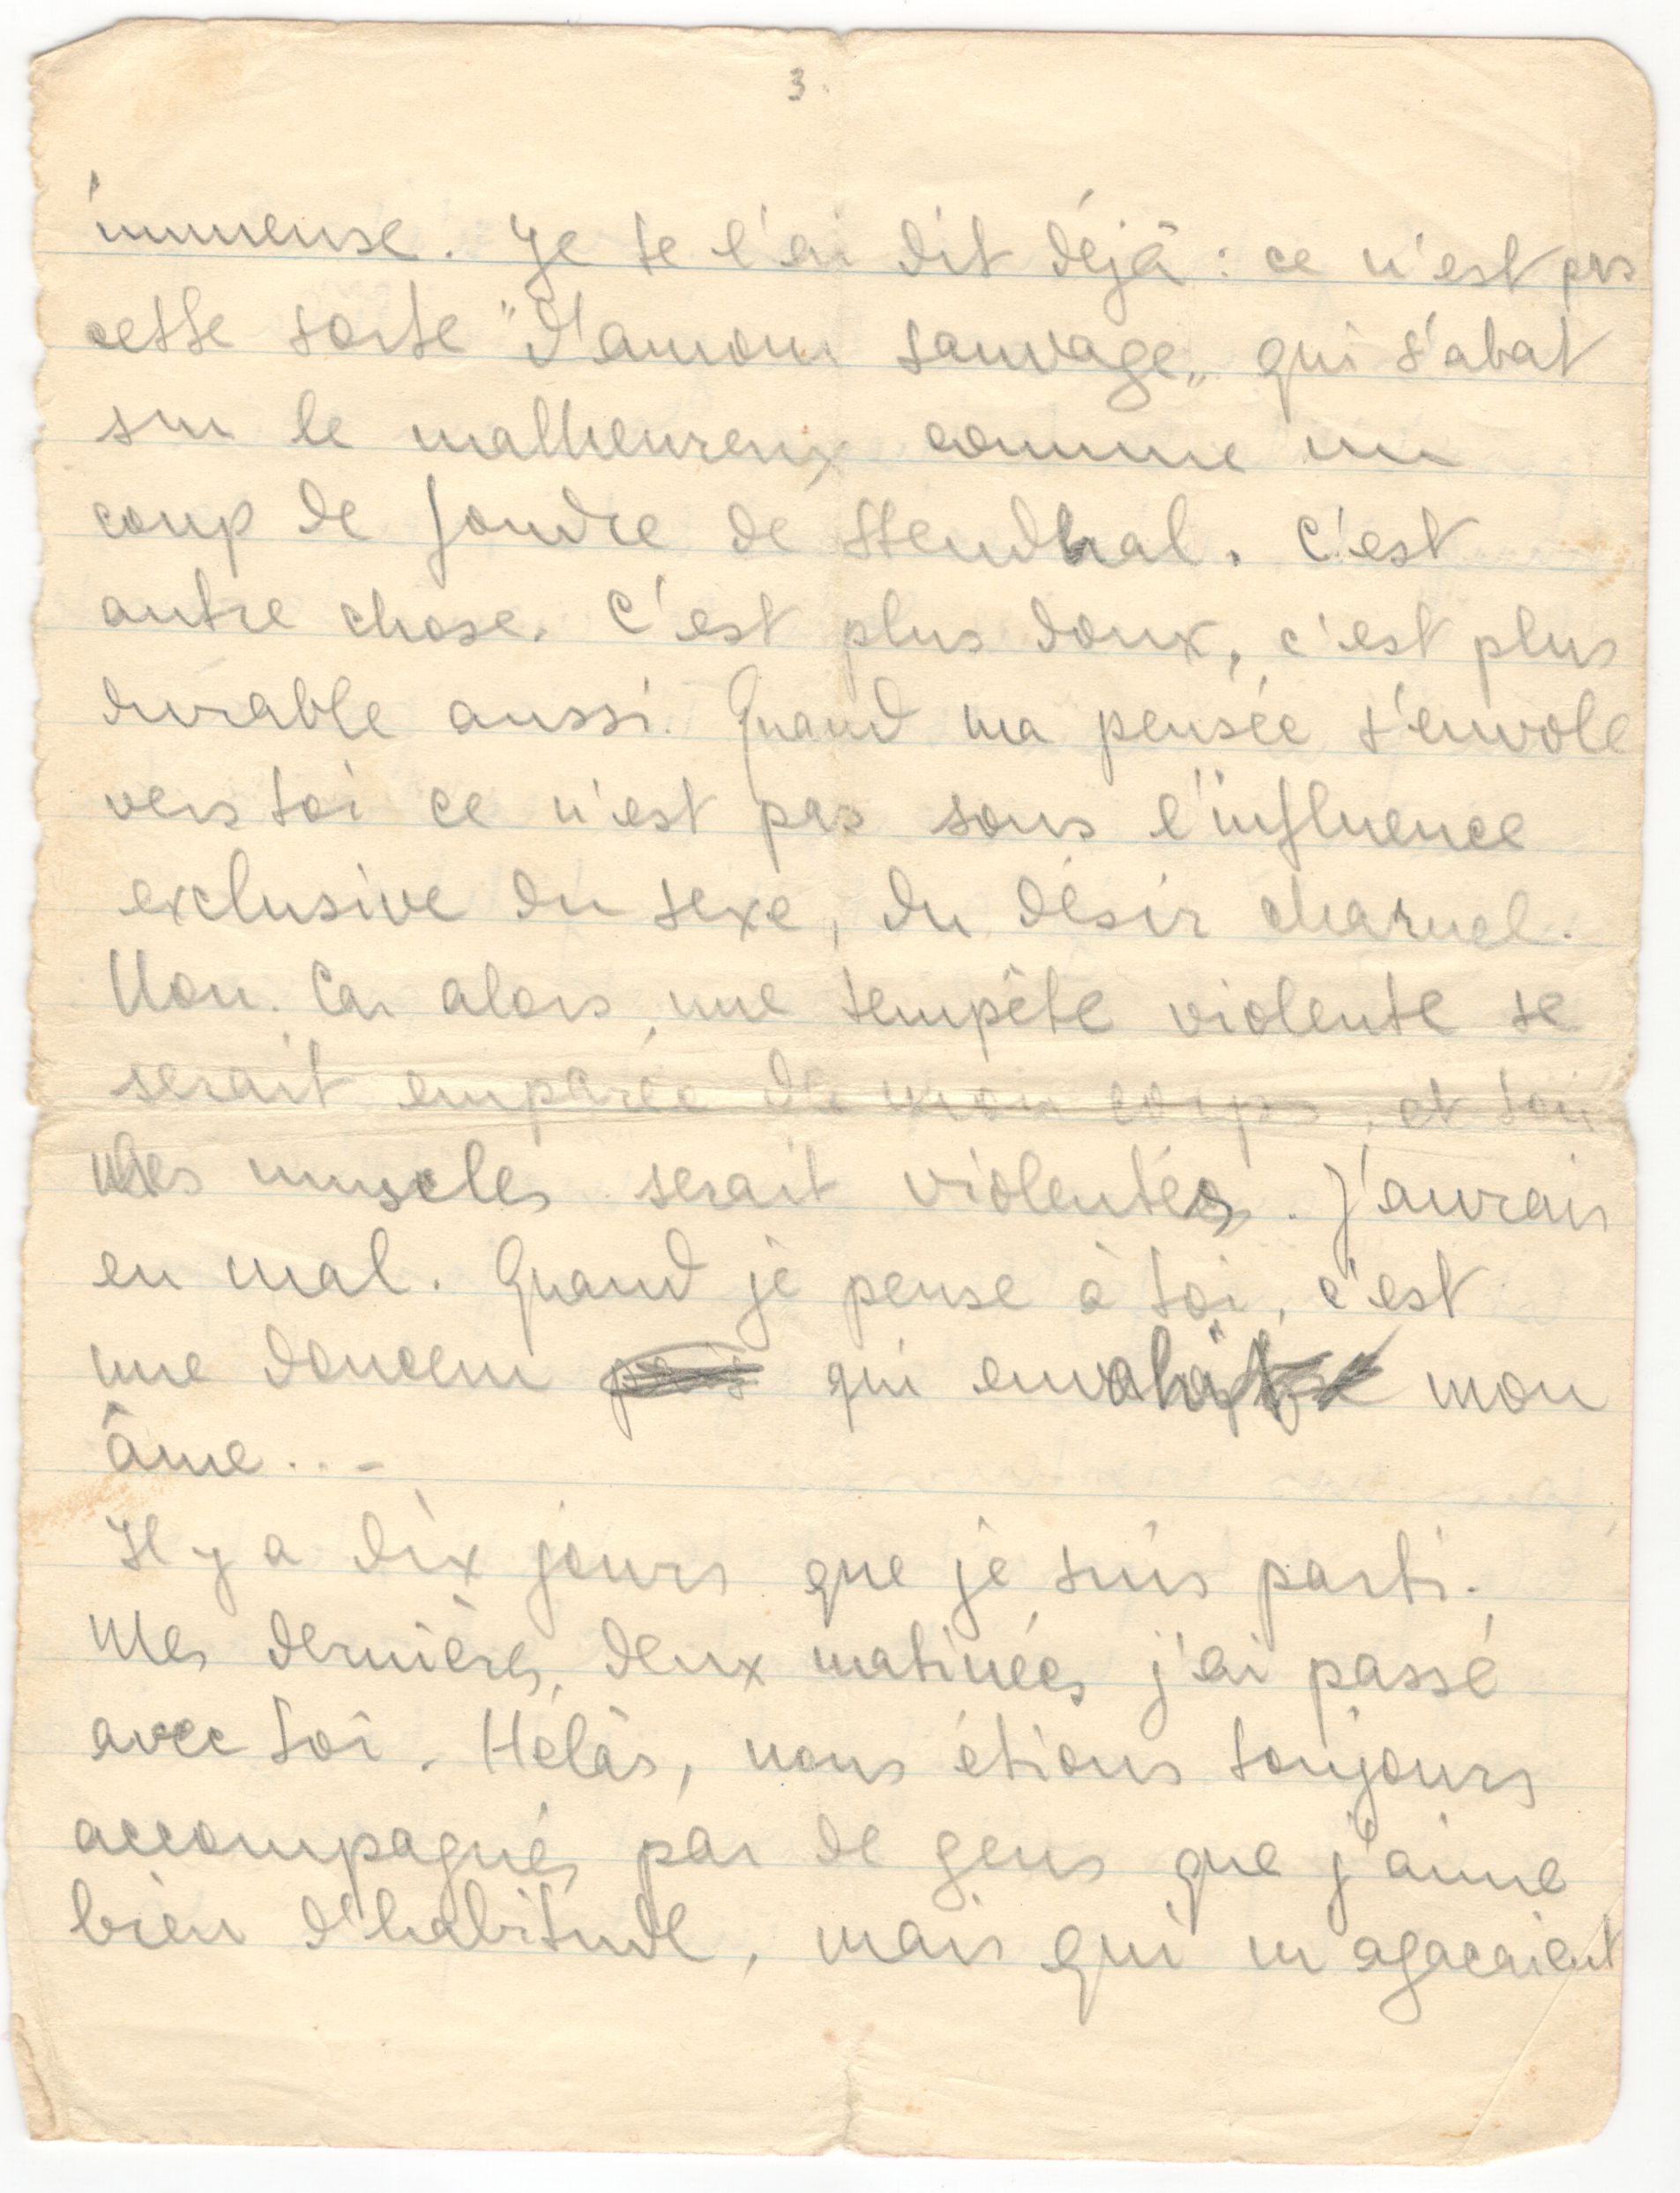 3.
immense. Je te l'ai dit déjà : ce n'est pas
cette sorte "d'amour sauvage„ qui s'abat
sur le malheureux comme un
coup de foudre de Stendhal. C'est
autre chose. C'est plus doux, c'est plus
durable aussi. Quand ma pensée s'envole
vers toi ce n'est pas sous l'influence
exclusive du sexe, du désir charnel.
Non. Car alors, une tempête violente se
serait emparée de mon corps, et tous
mes muscles serait violentés. J'aurais
eu mal. Quand je pense à toi, c'est
une douceur qui envahit mon
âme...
Il y a dix jours que je suis parti.
Mes dernières, deux matinées j'ai passé
avec toi. Hélàs, nous étions toujours
accompagnés par de gens que j'aime
bien d'habitude, mais qui m'agacaient